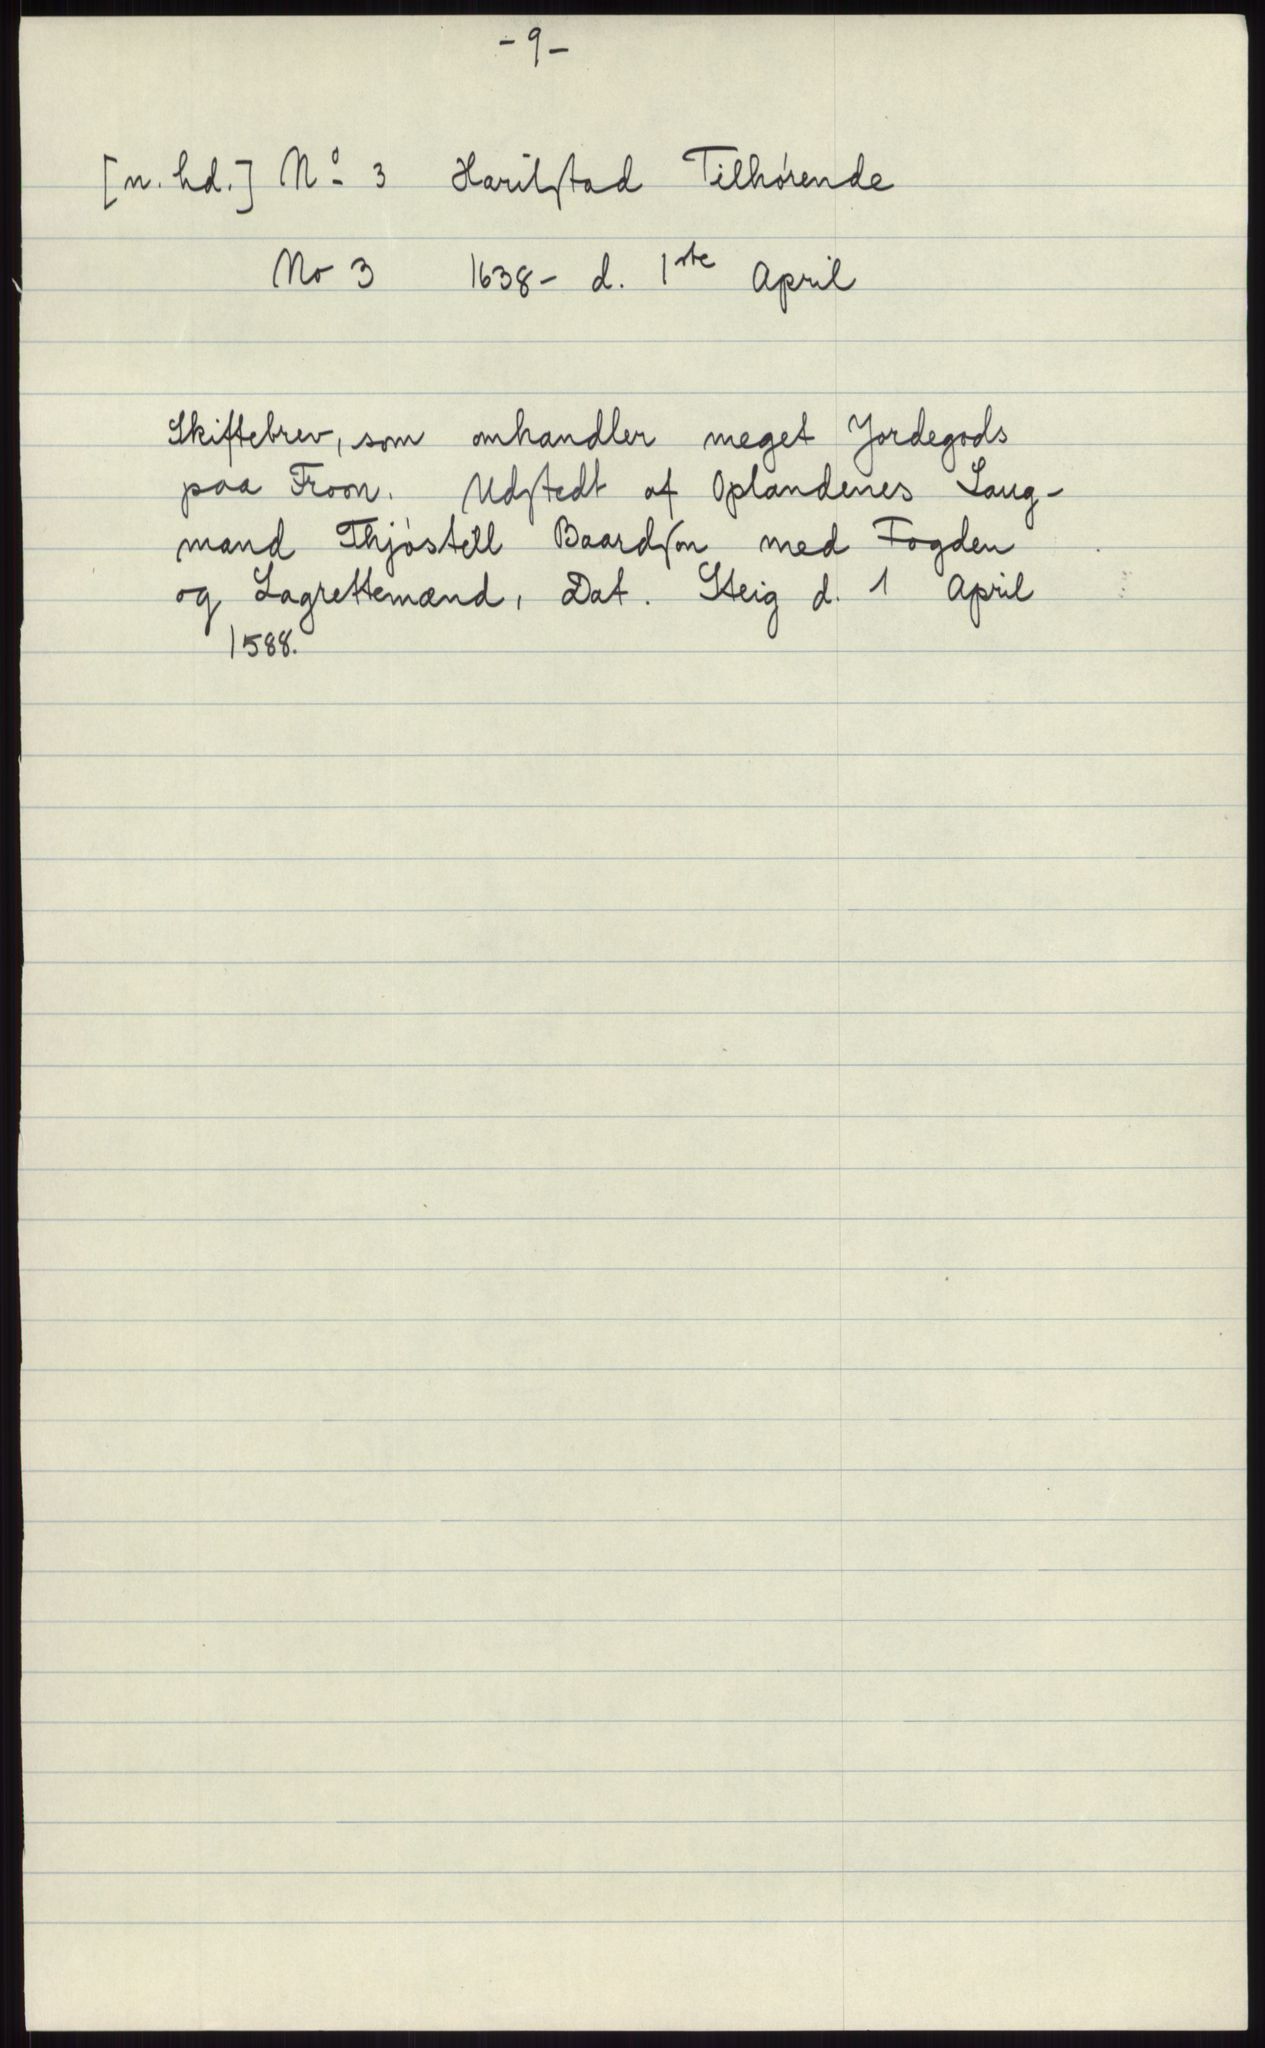 - 9 -
[n. hd.] No 3 Harilstad Tilhørende
No 3 1638 - d. 1ste April
Skiftebrev, som omhandler meget Jordegods
paa Fron. Udstedt af Oplandenes Laug-
mand Thjøstell Baardson med Fogden
og Lagrettemænd, Dat. Steig d. 1 April
1588.